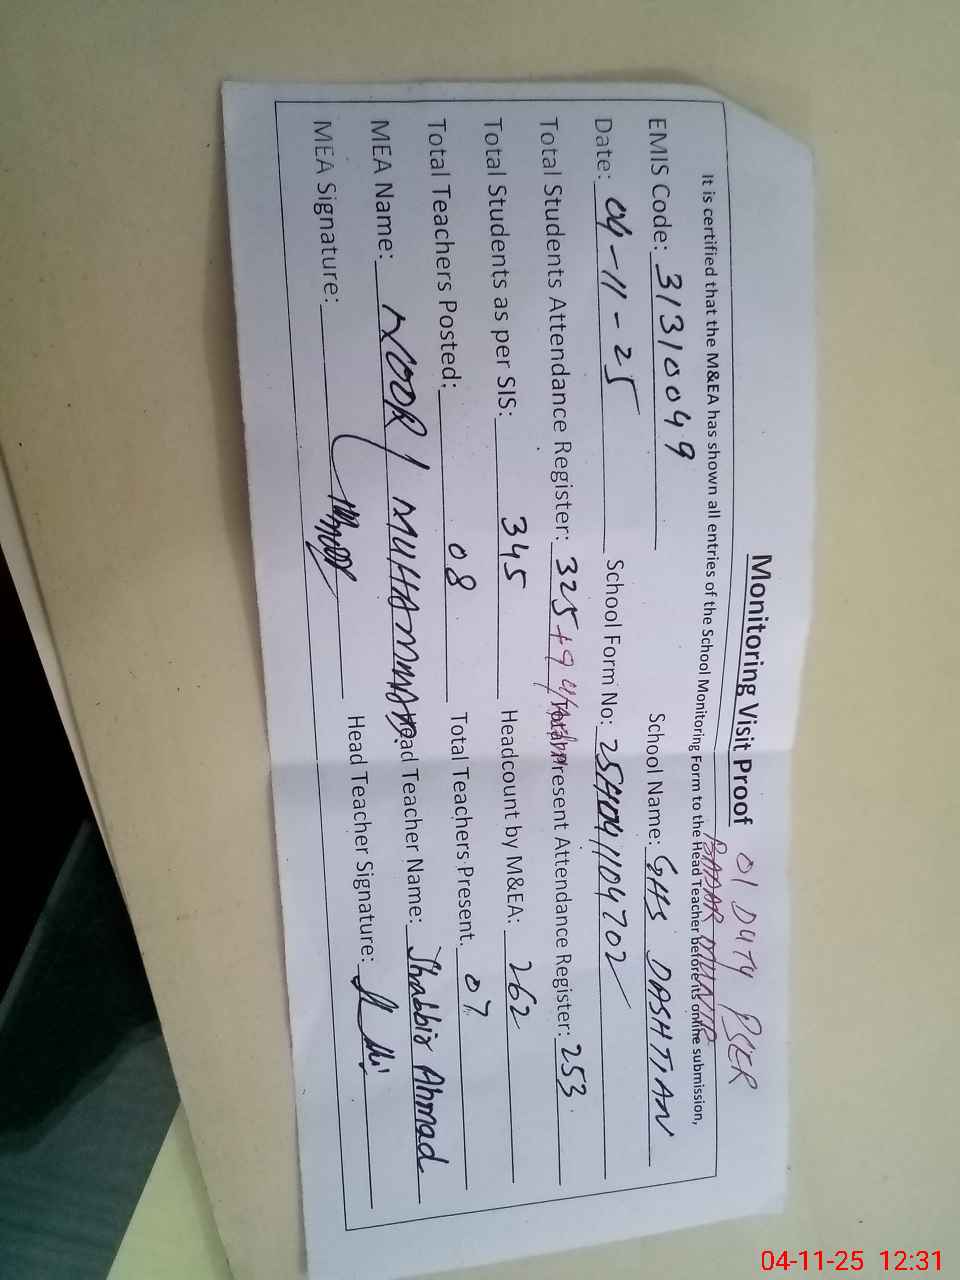 Monitoring Visit Proof
01 DUTY PSER
BADAR MUNIR
It is certified that the M&EA has shown all entries of the School Monitoring Form to the Head Teacher before its online submission,
EMIS Code: 31310049 School Name: GHS DASHTIAN
Date: 04-11-25 School Form No: 25H041104702
Total Students Attendance Register: 325+9 Present Attendance Register: 253
Total Students as per SIS: 345 Headcount by M&EA: 262
Total Teachers Posted: 08 Total Teachers Present. 07
MEA Name: NOOR MUHAMMAD Head Teacher Name: Shabbir Ahmad
MEA Signature: Head Teacher Signature:
04-11-25 12:31